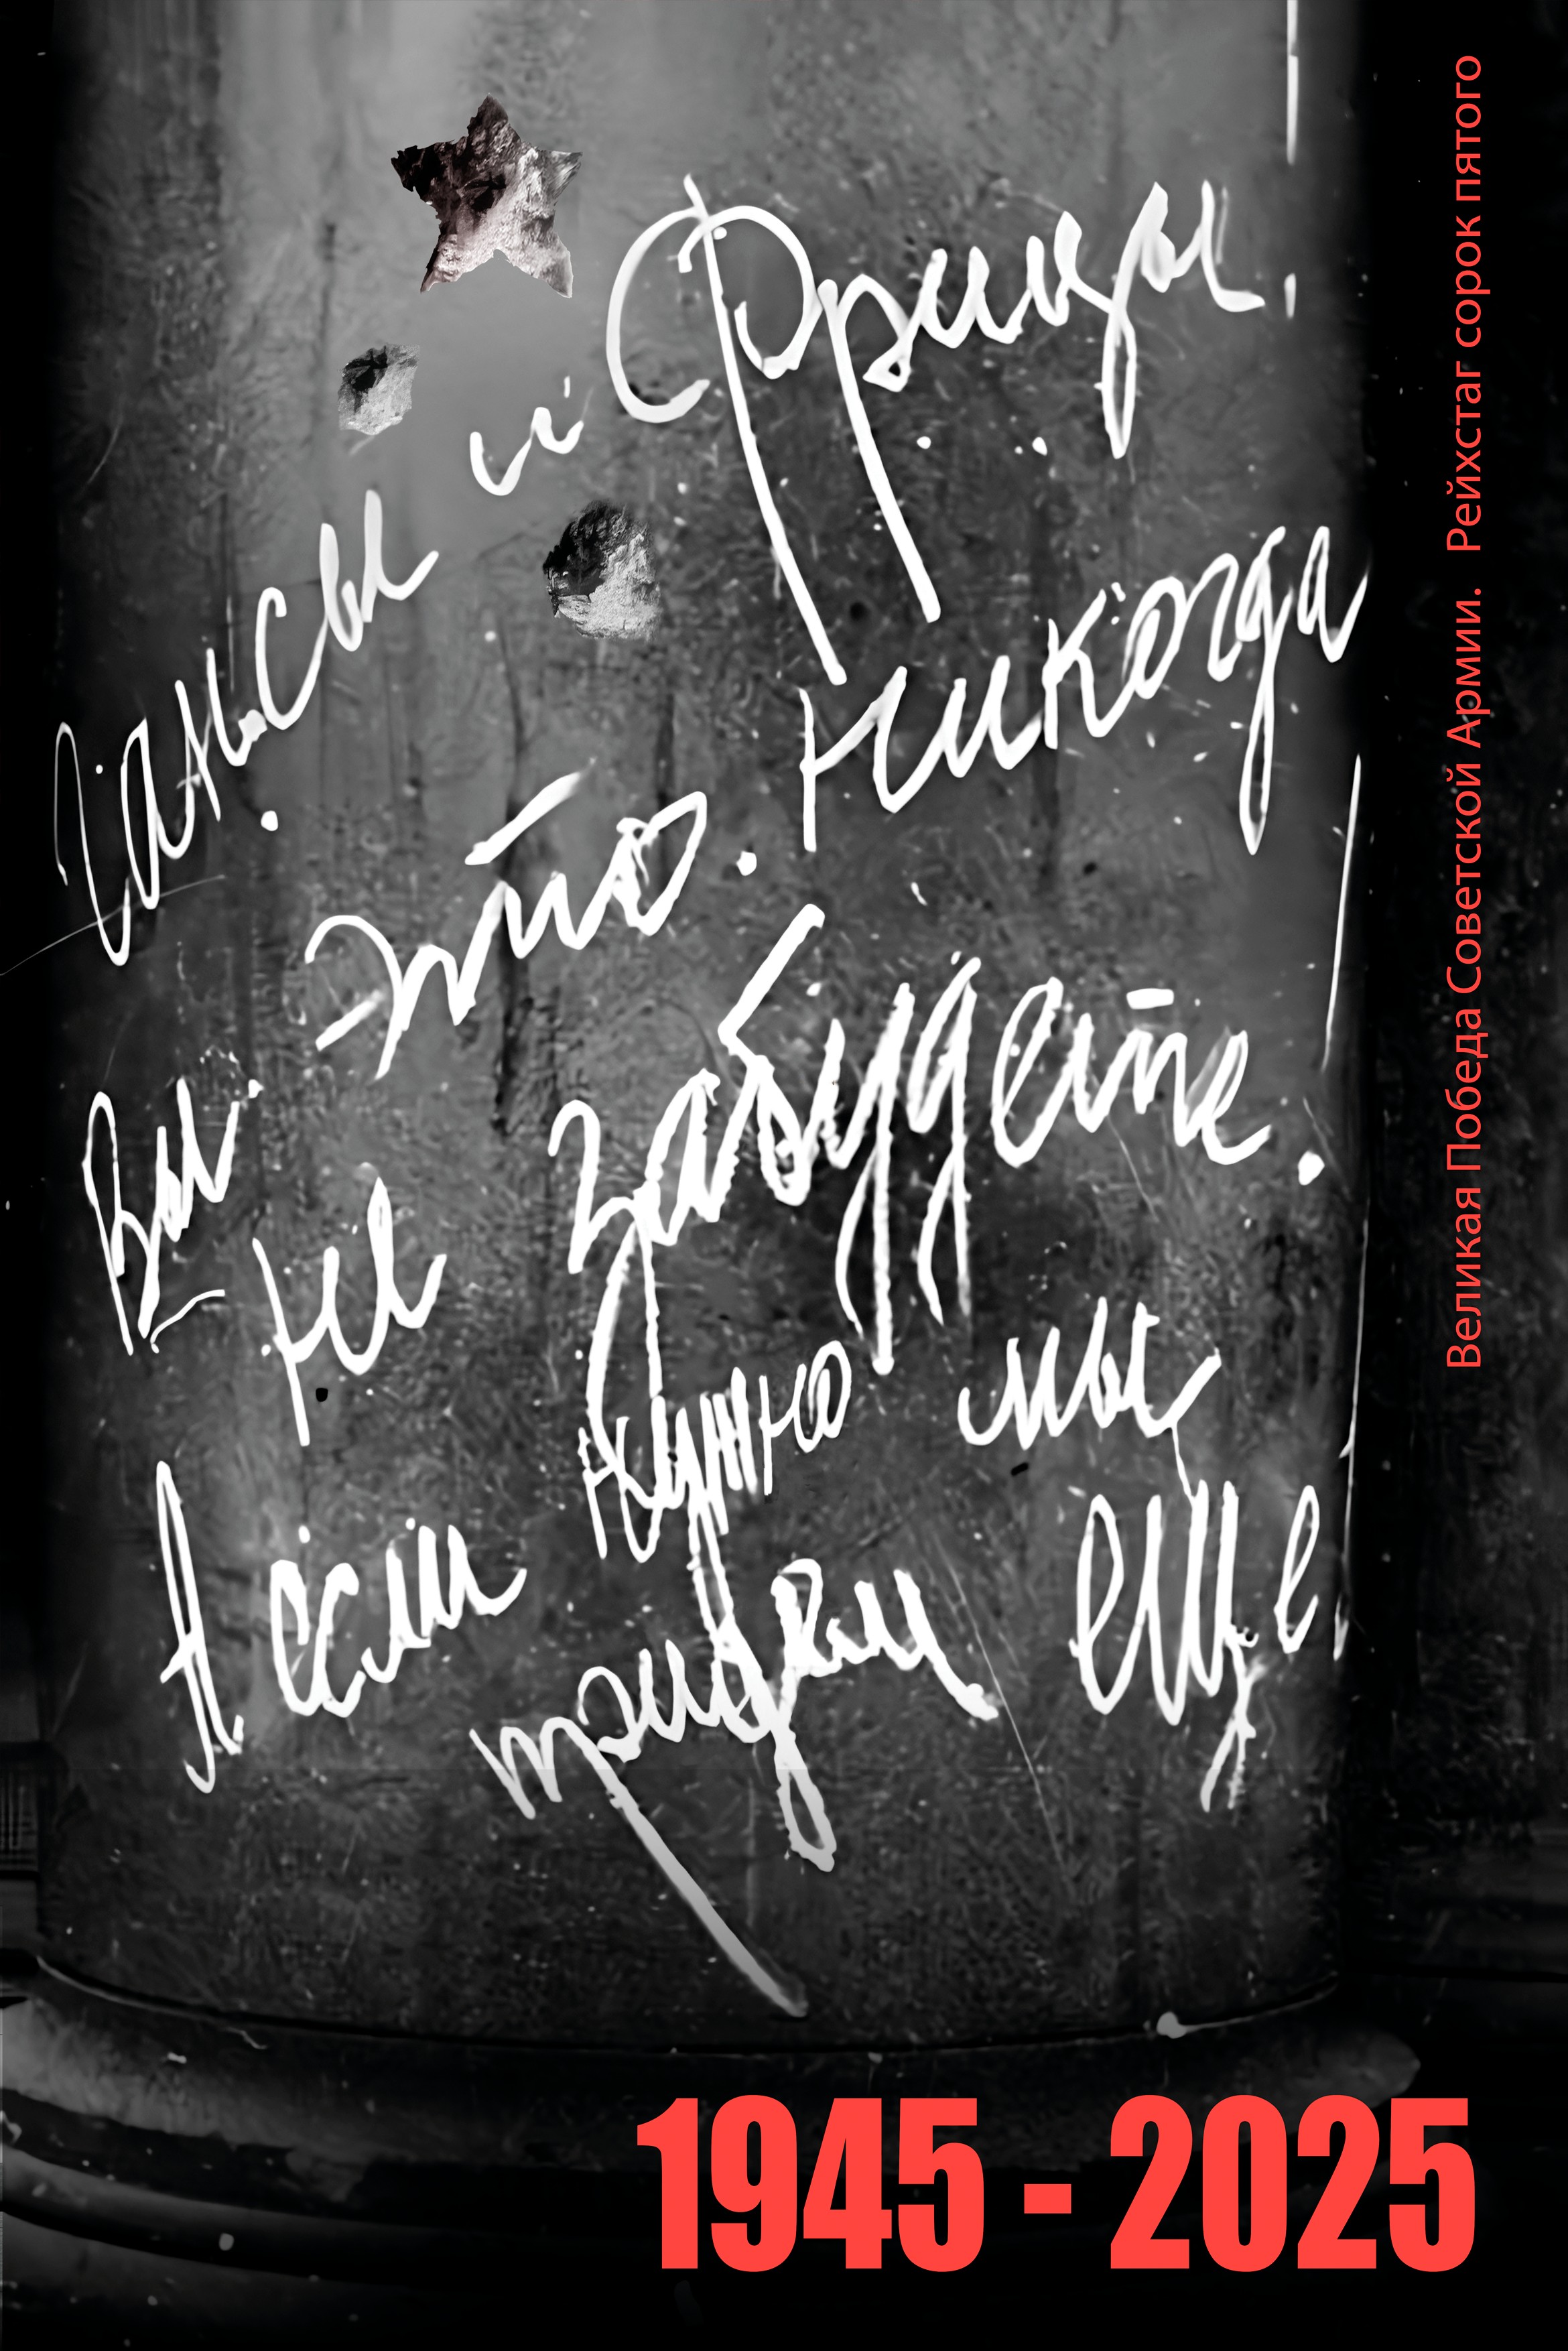 Гансы и Фрицы!
Вы это никогда
не забудете!
А если нужно мы
придем еще!
Великая Победа Советской Армии. Рейхстаг сорок пятого
1945 - 2025